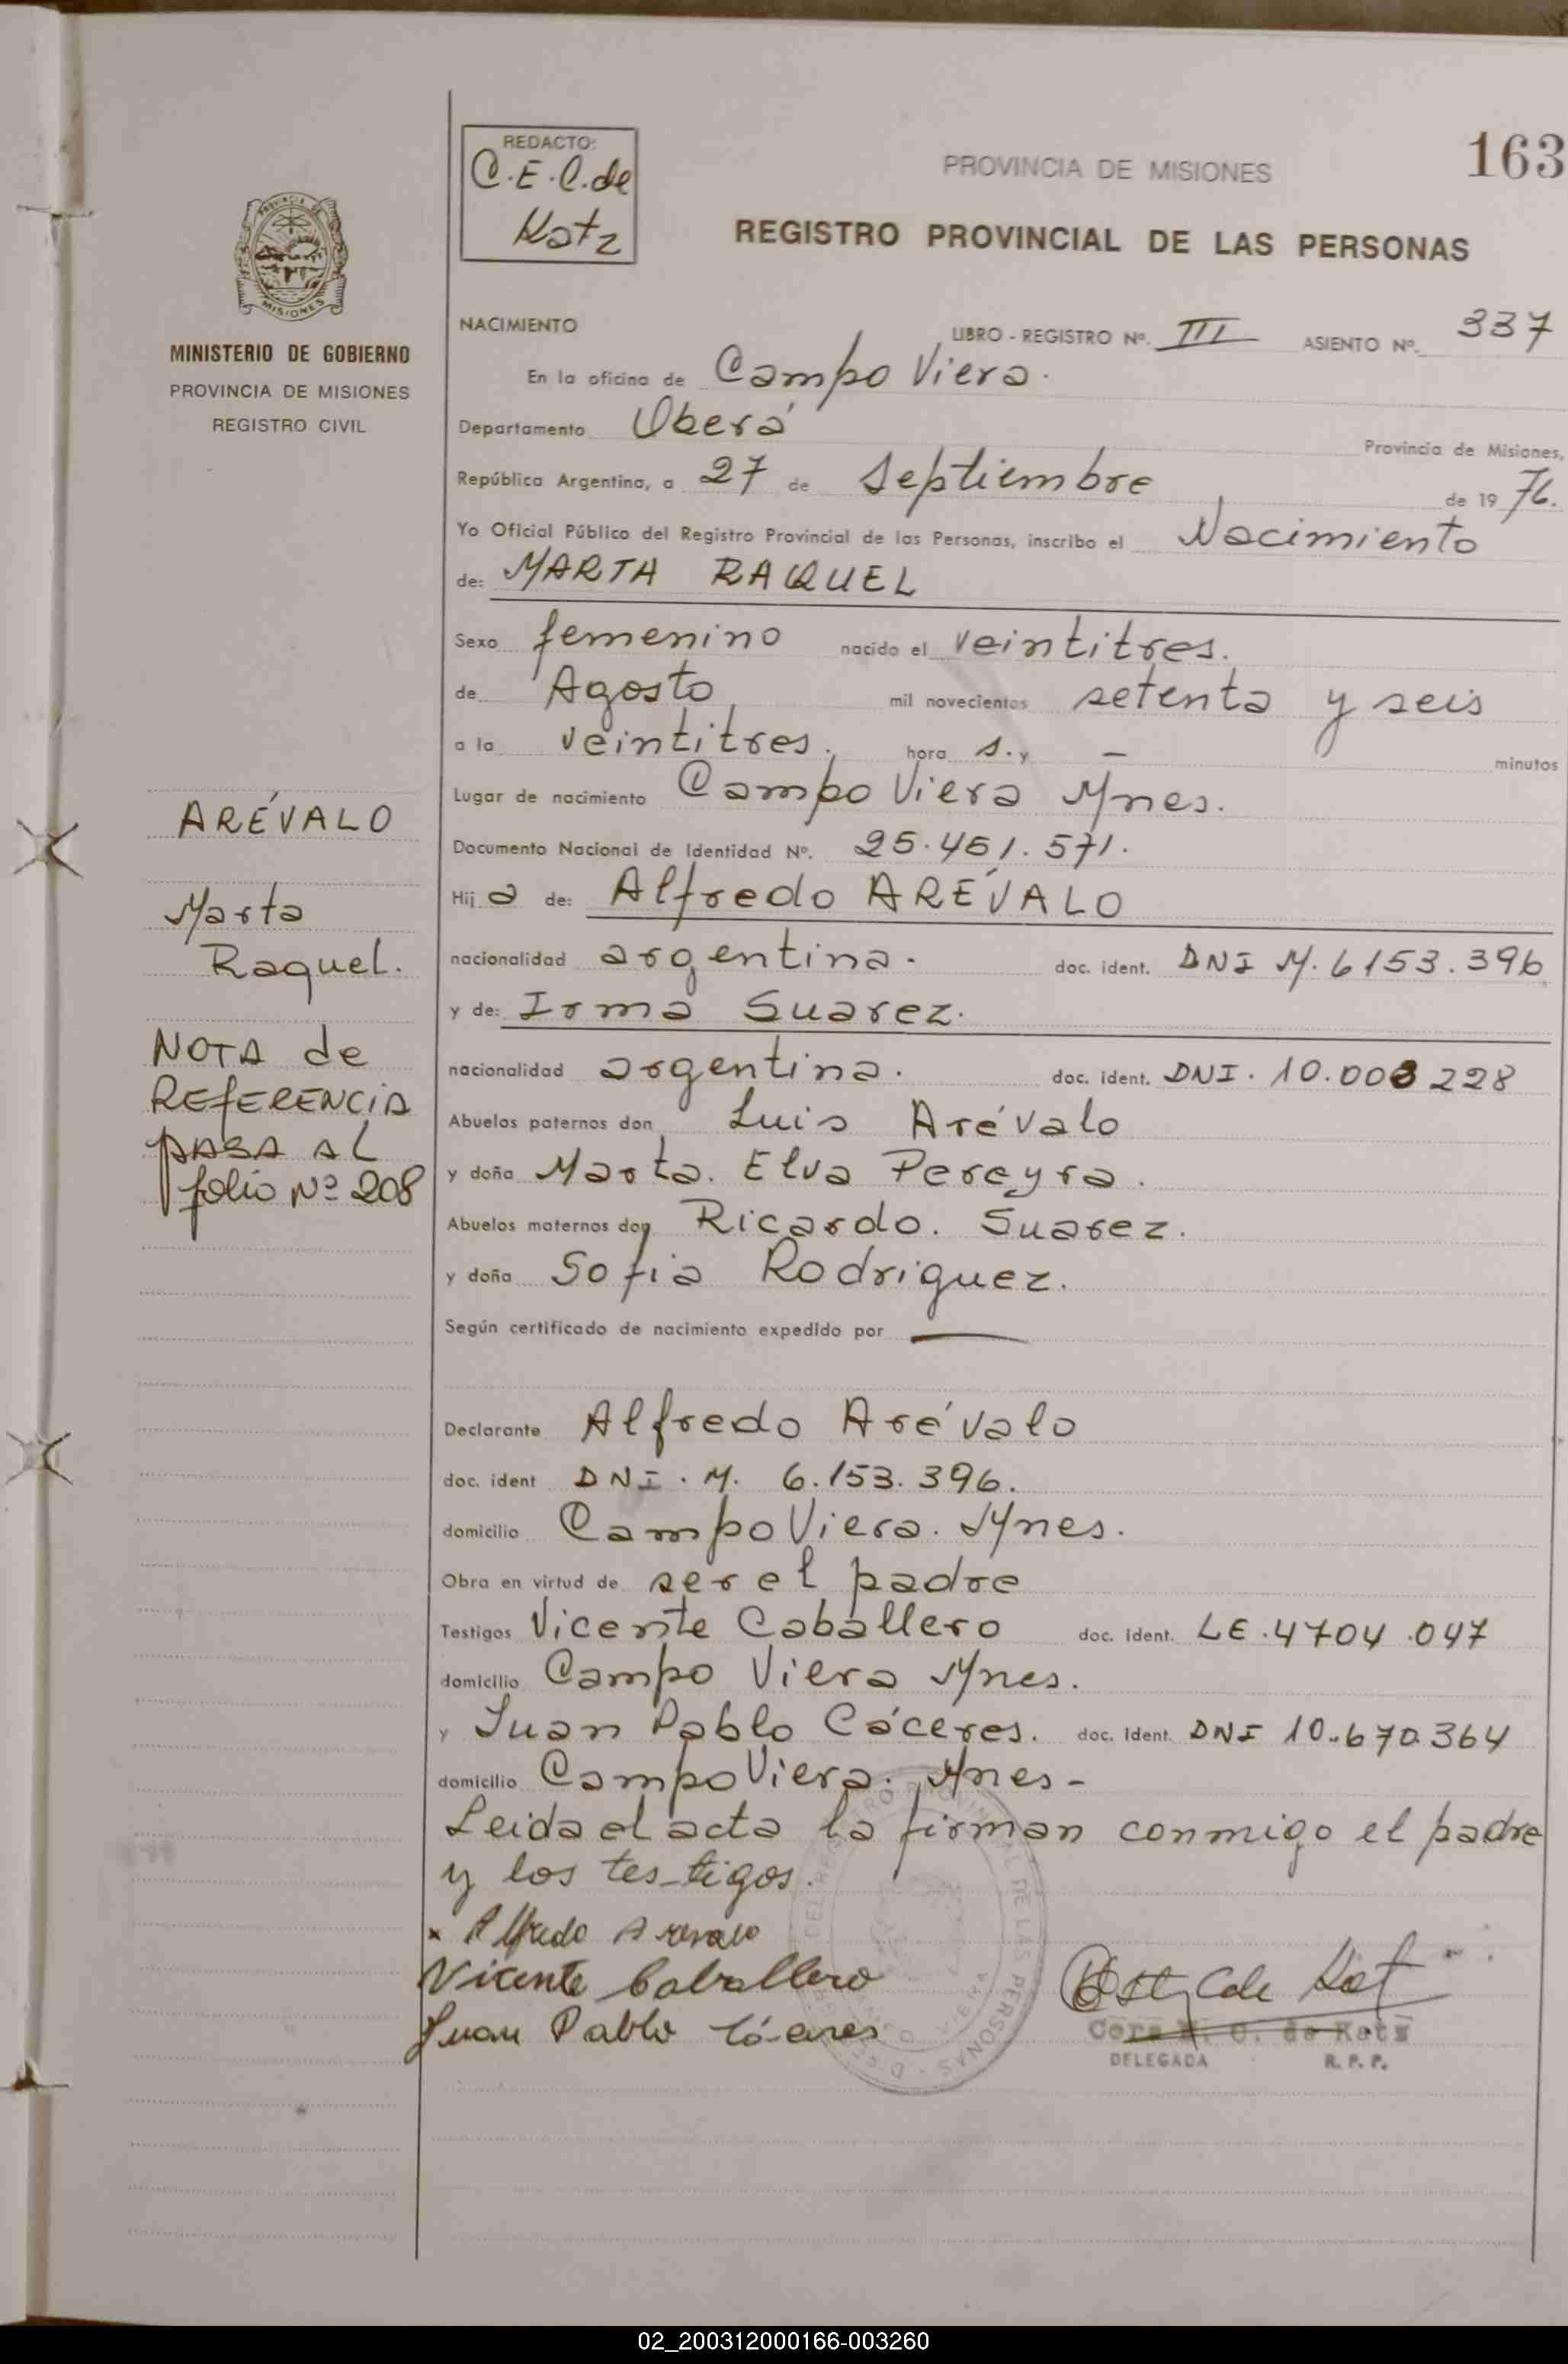 163
REDACTO:
C.E.C.de
Katz
PROVINCIA DE MISIONES
REGISTRO PROVINCIAL DE LAS PERSONAS
MISIONES
MINISTERIO DE GOBIERNO
PROVINCIA DE MISIONES
REGISTRO CIVIL
NACIMIENTO LIBRO - REGISTRO Nº. III ASIENTO Nº. 337
En la oficina de Campo Viera.
Departamento Oberá Provincia de Misiones,
República Argentina, a 27 de Septiembre de 19 76.
Yo Oficial Público del Registro Provincial de las Personas, inscribo el Nacimiento
de: MARTA RAQUEL
Sexo femenino nacido el veintitres.
de Agosto mil novecientos setenta y seis
a la veintitres. hora s. y — minutos
Lugar de nacimiento Campo Viera Mnes.
Documento Nacional de Identidad Nº. 25.451.571.
Hij a de: Alfredo ARÉVALO
nacionalidad argentina. doc. ident. DNI M. 6153.396
y de: Irma Suarez.
nacionalidad argentina. doc. ident. DNI. 10.003 228
Abuelos paternos don Luis Arévalo
y doña Marta. Elva Pereyra.
Abuelos maternos don Ricardo. Suarez.
y doña Sofia Rodriguez.
Según certificado de nacimiento expedido por —
Declarante Alfredo Arévalo
doc. ident DNI. M. 6.153.396.
domicilio Campo Viera. Mnes.
Obra en virtud de ser el padre
Testigos Vicente Caballero doc. ident. LE.4704.047
domicilio Campo Viera Mnes.
y Juan Pablo Cáceres. doc. ident. DNI 10.670.364
domicilio Campo Viera. Mnes-
Leida el acta la firman conmigo el padre
y los testigos.
x Alfredo Arevalo
Vicente Caballero
Juan Pablo Cáceres
de Katz
DELEGADA R. P. P.
ARÉVALO
Marta
Raquel.
NOTA de
REFERENCIA
PASA AL
folio Nº 208
02_200312000166-003260